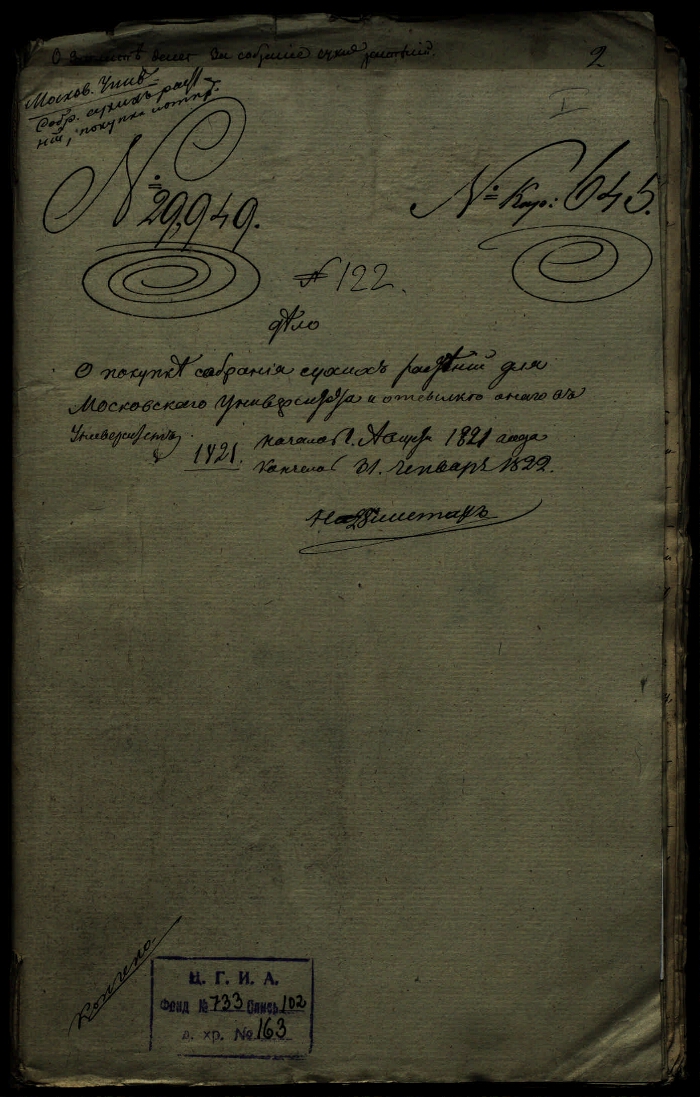 О денег за собрание сухих растений.
2
Москов. Унив
Собр. сухихъ расте-
ній, покупка
I
№ 29,949.
№ Кар: 645.
№ 122.
дѣло
О покупкѣ собранія сухихъ растѣній для
Московскаго Университета и отсылкѣ онаго въ
Университетъ
1821. начало 1. Августа 1821 года
кончено 31. Генваря 1822.
На листахъ
Кончено
Ц. Г. И. А.
Фонд № 733 Опись 102
д. хр. № 163